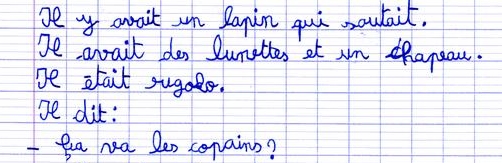 Il y avait un lapin qui sautait.
Il avait des lunettes et un chapeau.
Il était rugolo.
Il dit :
- ça va les copains ?